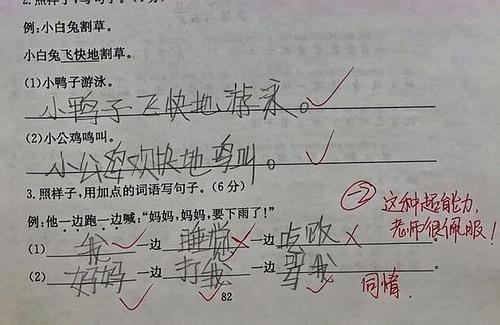 2.照样子,写句子。(4分)
例:小白兔割草。
小白兔飞快地割草。
(1)小鸭子游泳。
小鸭子飞快地游泳。
(2)小公鸡鸣叫。
小公鸡欢快地鸣叫。
3.照样子,用加点的词语写句子。(6分)
例:他一边跑一边喊:“妈妈,妈妈,要下雨了!”
(1)我一边睡觉一边唱歌。
(2)妈妈一边打我一边骂我。
-2 这种超能力,
老师很佩服!
同情.
82